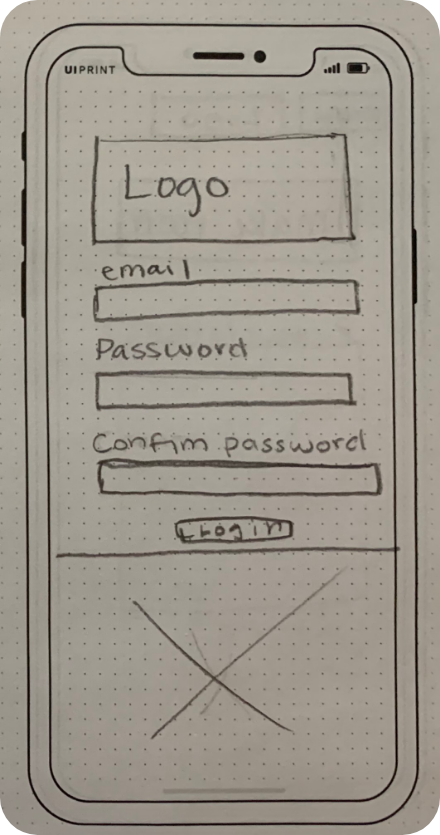 UIPRINT
Logo
email
Password
Confim password
Login